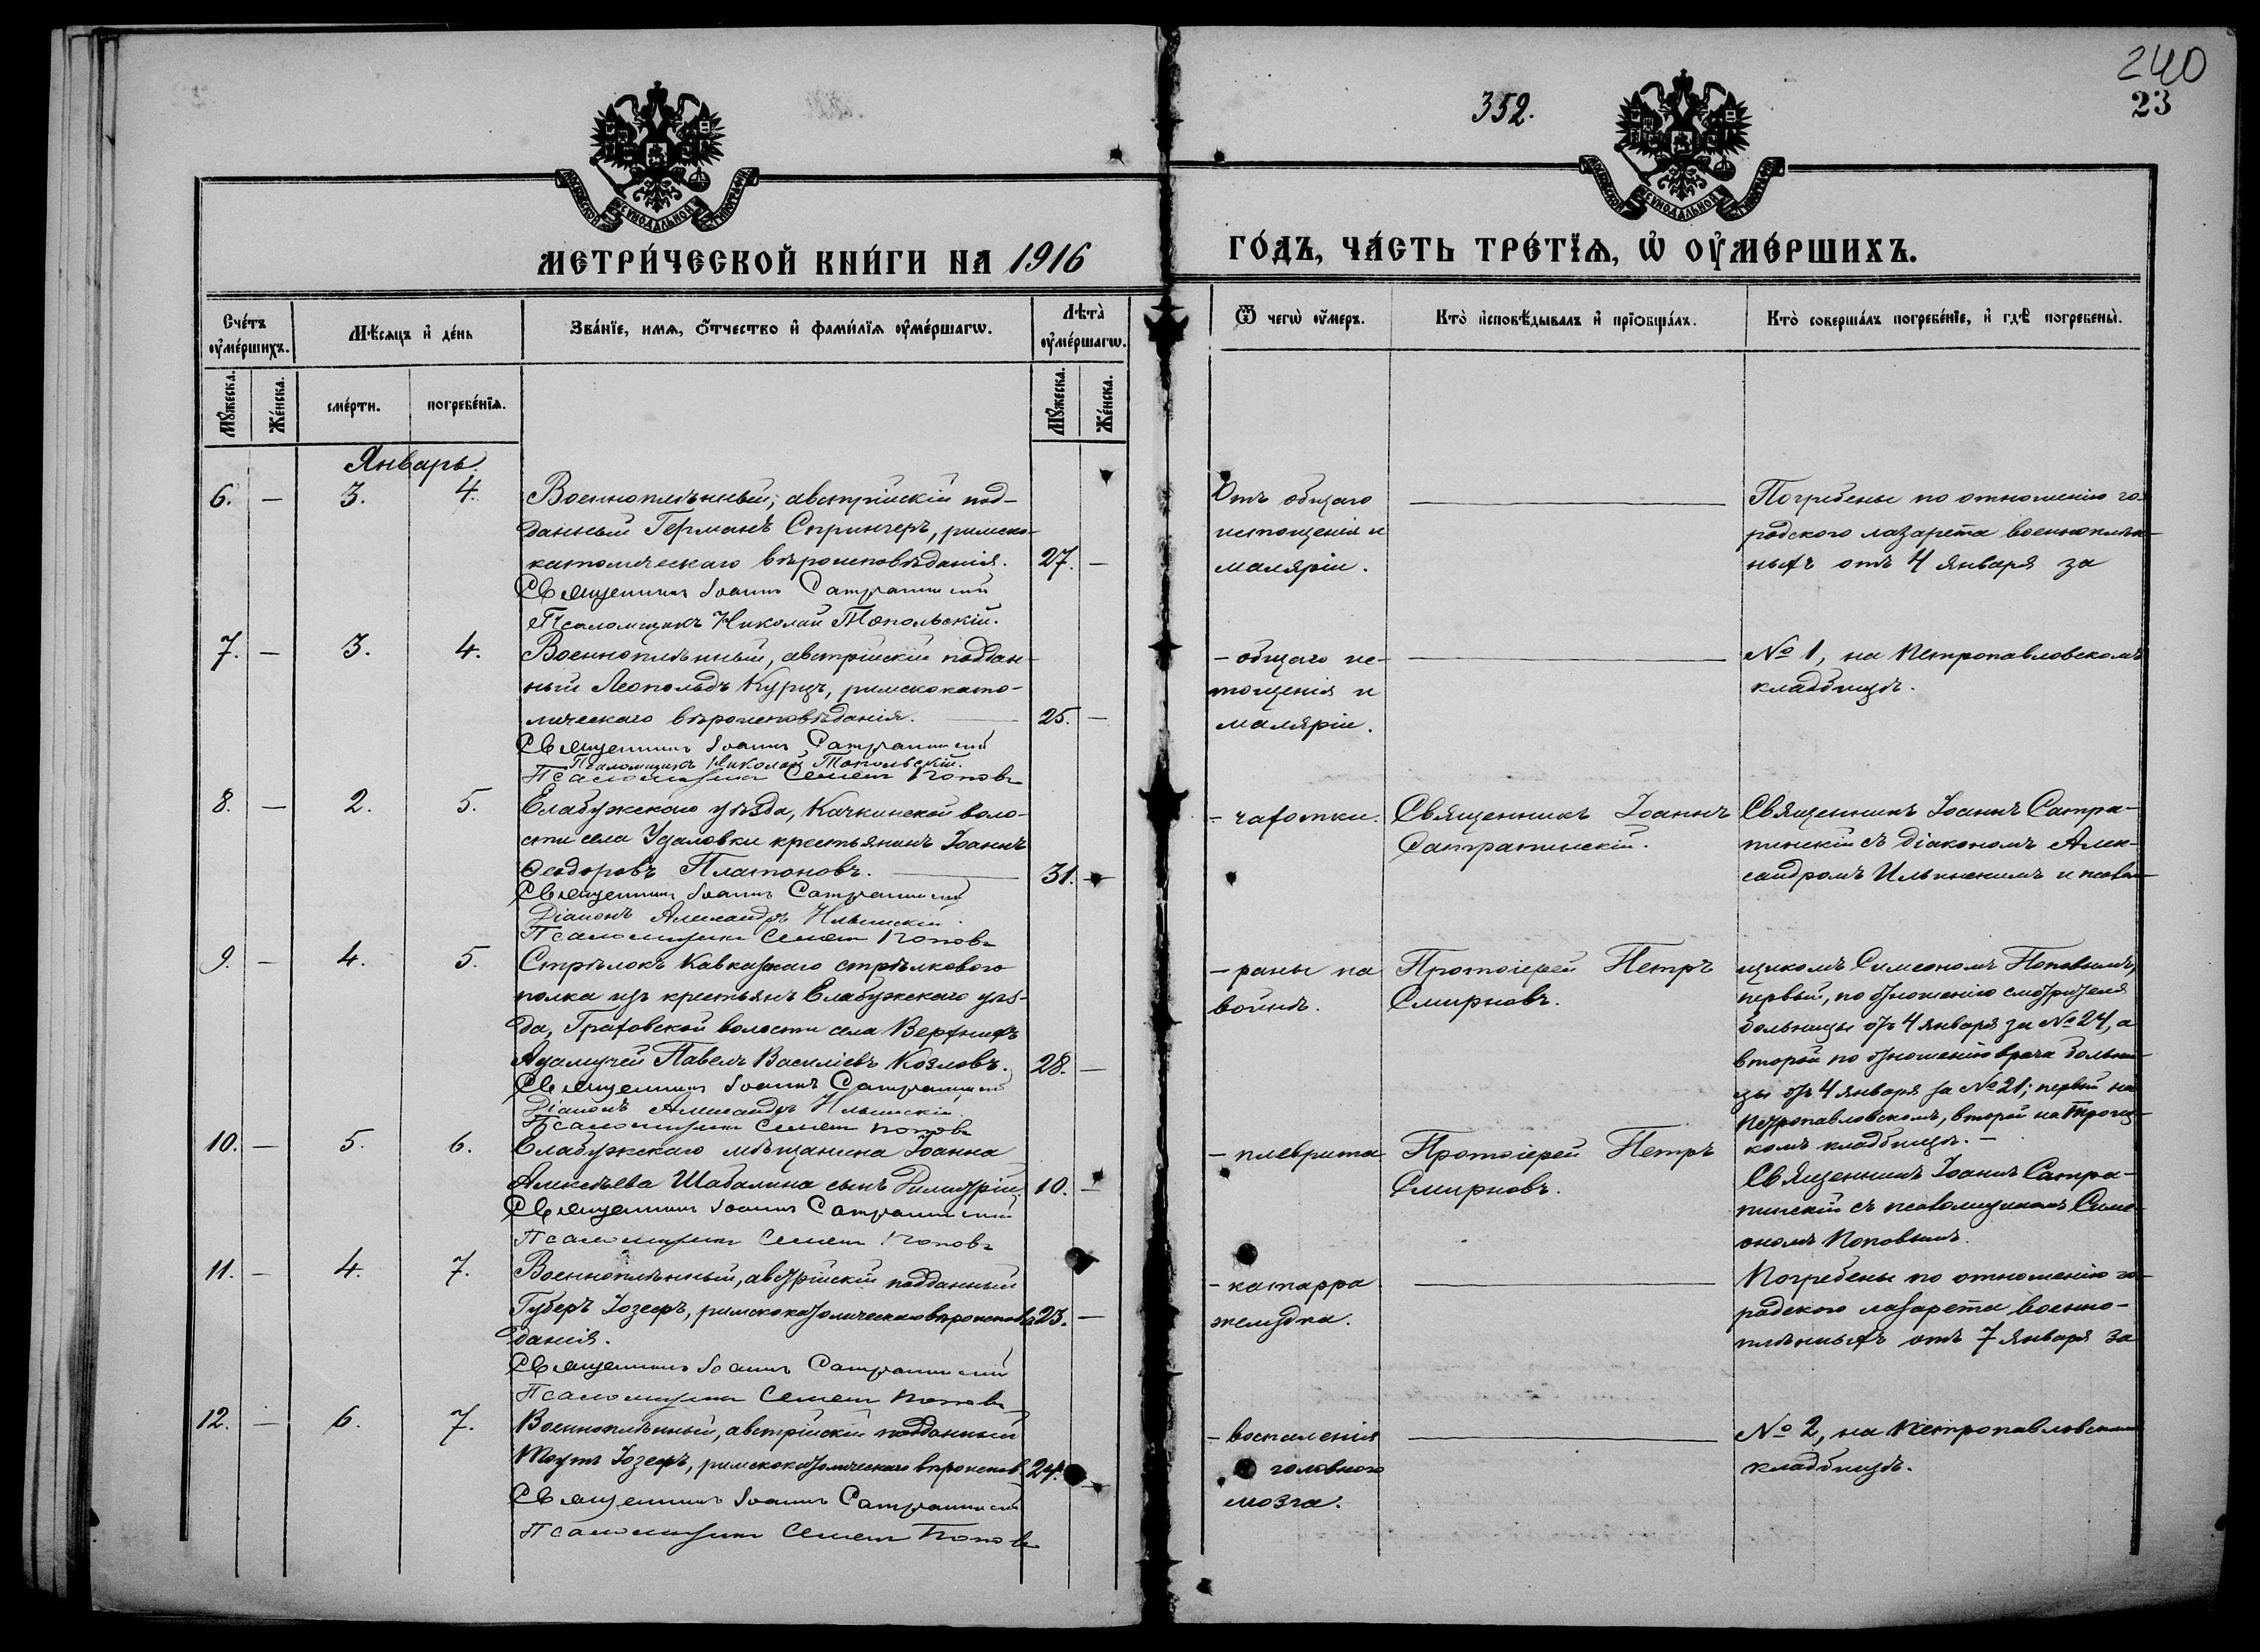 240
352.
23
МОСКОВСКОЙ СѴНОДАЛЬНОЙ ТИПОГРАФІИ
МОСКОВСКОЙ СѴНОДАЛЬНОЙ ТИПОГРАФІИ
МЕТРИ́ЧЕСКОЙ КНИ́ГИ НА 1916
ГО́ДЪ, ЧА́СТЬ ТРЕ́ТЇѦ, Ѡ҆ ОУ҆МЕ́РШИХЪ.
Сче́тъ оу҆ме́ршихъ.
Мѣ́сяцъ и҆ де́нь
Зва́нїе, имѧ, ѻ҆́тчество и҆ фами́лїѧ оу҆ме́ршагѡ.
Лѣта̀ оу҆ме́ршагѡ.
Ѿ чегѡ̀ оу҆́меръ.
Кто̀ и҆сповѣ́дывалъ и҆ прїобща́лъ.
Кто̀ соверша́лъ погребе́нїе, и҆ гдѣ̀ погребены̀.
Мꙋ́жеска.
Же́нска.
сме́рти.
погребе́нїѧ.
Мꙋ́жеска.
Же́нска.
Январь.
6. — 3. 4. Военноплѣнный, австрійскій под-
данный Германъ Спрингеръ, римско-
католическаго вѣроисповѣданія. 27. —
Священникъ Іоаннъ Сатрапинскій
Псаломщикъ Николай Топольскій.
Отъ общаго
истощенія и
маляріи.
Погребены по отношенію го-
родского лазарета военноплѣн-
ныхъ отъ 4 января за
7. — 3. 4. Военноплѣнный, австрійскій поддан-
ный Леопольдъ Курцъ, римскокато-
лическаго вѣроисповѣданія. — 25. —
Священникъ Іоаннъ Сатрапинскій
Псаломщикъ Николай Топольскій.
Псаломщикъ Семенъ Поповъ
— общаго ис-
тощенія и
маляріи.
№ 1, на Петропавловскомъ
кладбищѣ.
8. — 2. 5. Елабужскаго уѣзда, Качкинской воло-
сти села Удаловки крестьянинъ Іоаннъ
Ѳеодоровъ Платоновъ. — 31. —
Священникъ Іоаннъ Сатрапинскій
Діаконъ Александръ Ильинскій
Псаломщикъ Семенъ Поповъ
— чахотки.
Священникъ Іоаннъ
Сатрапинскій.
Священникъ Іоаннъ Сатра-
пинскій съ діакономъ Алек-
сандромъ Ильинскимъ и псалом-
9. — 4. 5. Стрѣлокъ Кавказскаго стрѣлковаго
полка изъ крестьянъ Елабужскаго уѣз-
да, Граховской волости села Верхнихъ
Адамучей Павелъ Василіевъ Козловъ. 28. —
Священникъ Іоаннъ Сатрапинскій
Діаконъ Александръ Ильинскій
Псаломщикъ Семенъ Поповъ
— раны на
войнѣ.
Протоіерей Петръ
Смирновъ.
щикомъ Симеономъ Поповымъ,
первый, по отношенію смотрителя
больницы отъ 4 января за № 24, а
второй по отношенію врача больни-
цы отъ 4 января за № 21; первый на
Петропавловскомъ, второй на Троиц-
комъ кладбищѣ. —
10. — 5. 6. Елабужскаго мѣщанина Іоанна
Алексѣева Шабалина сынъ Димитрій. 10. —
Священникъ Іоаннъ Сатрапинскій
Псаломщикъ Семенъ Поповъ
— плеврита
Протоіерей Петръ
Смирновъ.
Священникъ Іоаннъ Сатра-
пинскій съ псаломщикомъ Симе-
ономъ Поповымъ.
11. — 4. 7. Военноплѣнный, австрійскій подданный
Губеръ Іозефъ, римскокатолическаго вѣроисповѣ- 23. —
данія.
Священникъ Іоаннъ Сатрапинскій
Псаломщикъ Семенъ Поповъ
— катарра
желудка.
Погребены по отношенію го-
родского лазарета военно-
плѣнныхъ отъ 7 января за
12. — 6. 7. Военноплѣнный, австрійскій подданный
Іозефъ, римскокатолическаго вѣроисповѣ. 24. —
Священникъ Іоаннъ Сатрапинскій
Псаломщикъ Семенъ Поповъ
— воспаленія
головного
мозга.
№ 2, на Петропавловскомъ
кладбищѣ.